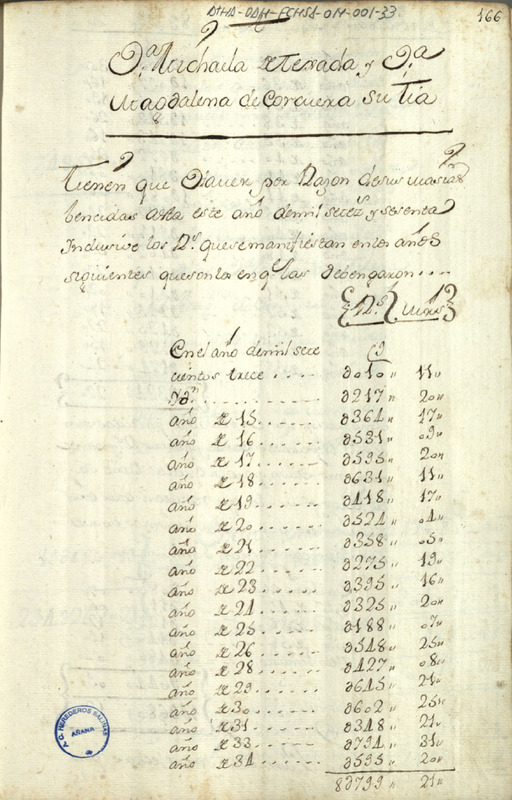 ATHA-DAH-FCHSA-011-001-33
166
D.ª Michaela de Texada, y D.ª
Magdalena de Corcuera su tia
tienen que Haver por Razon desus masias
bencidas asta este año demil setez.s y sesenta
Inclusive los R.s que semanifiestan en los años
siguientes que son los en q.e las debengaron ....
R.s mrs
En el año de mil sete
cientos trece ..... 0010 " 11 "
Id.n ............ 0217 " 20 "
año de 15 ...... 0364 " 17 "
año de 16 ...... 0531 " 09 "
año de 17 ...... 0595 " 20 "
año de 18 ...... 0631 " 11 "
año de 19 ...... 0418 " 17 "
año de 20 ...... 0524 " 04 "
año de 21 ...... 0358 " 05 "
año de 22 ...... 0275 " 19 "
año de 23 ...... 0395 " 16 "
año de 24 ...... 0325 " 20 "
año de 25 ...... 0188 " 07 "
año de 26 ...... 0548 " 25 "
año de 28 ...... 0427 " 08 "
año de 29 ...... 0645 " 21 "
año de 30 ...... 0602 " 25 "
año de 31 ...... 0348 " 21 "
año de 33 ...... 0794 " 31 "
año de 34 ...... 0595 " 20 "
80799 " 21 "
A.C. HEREDEROS SALINAS
AÑANA